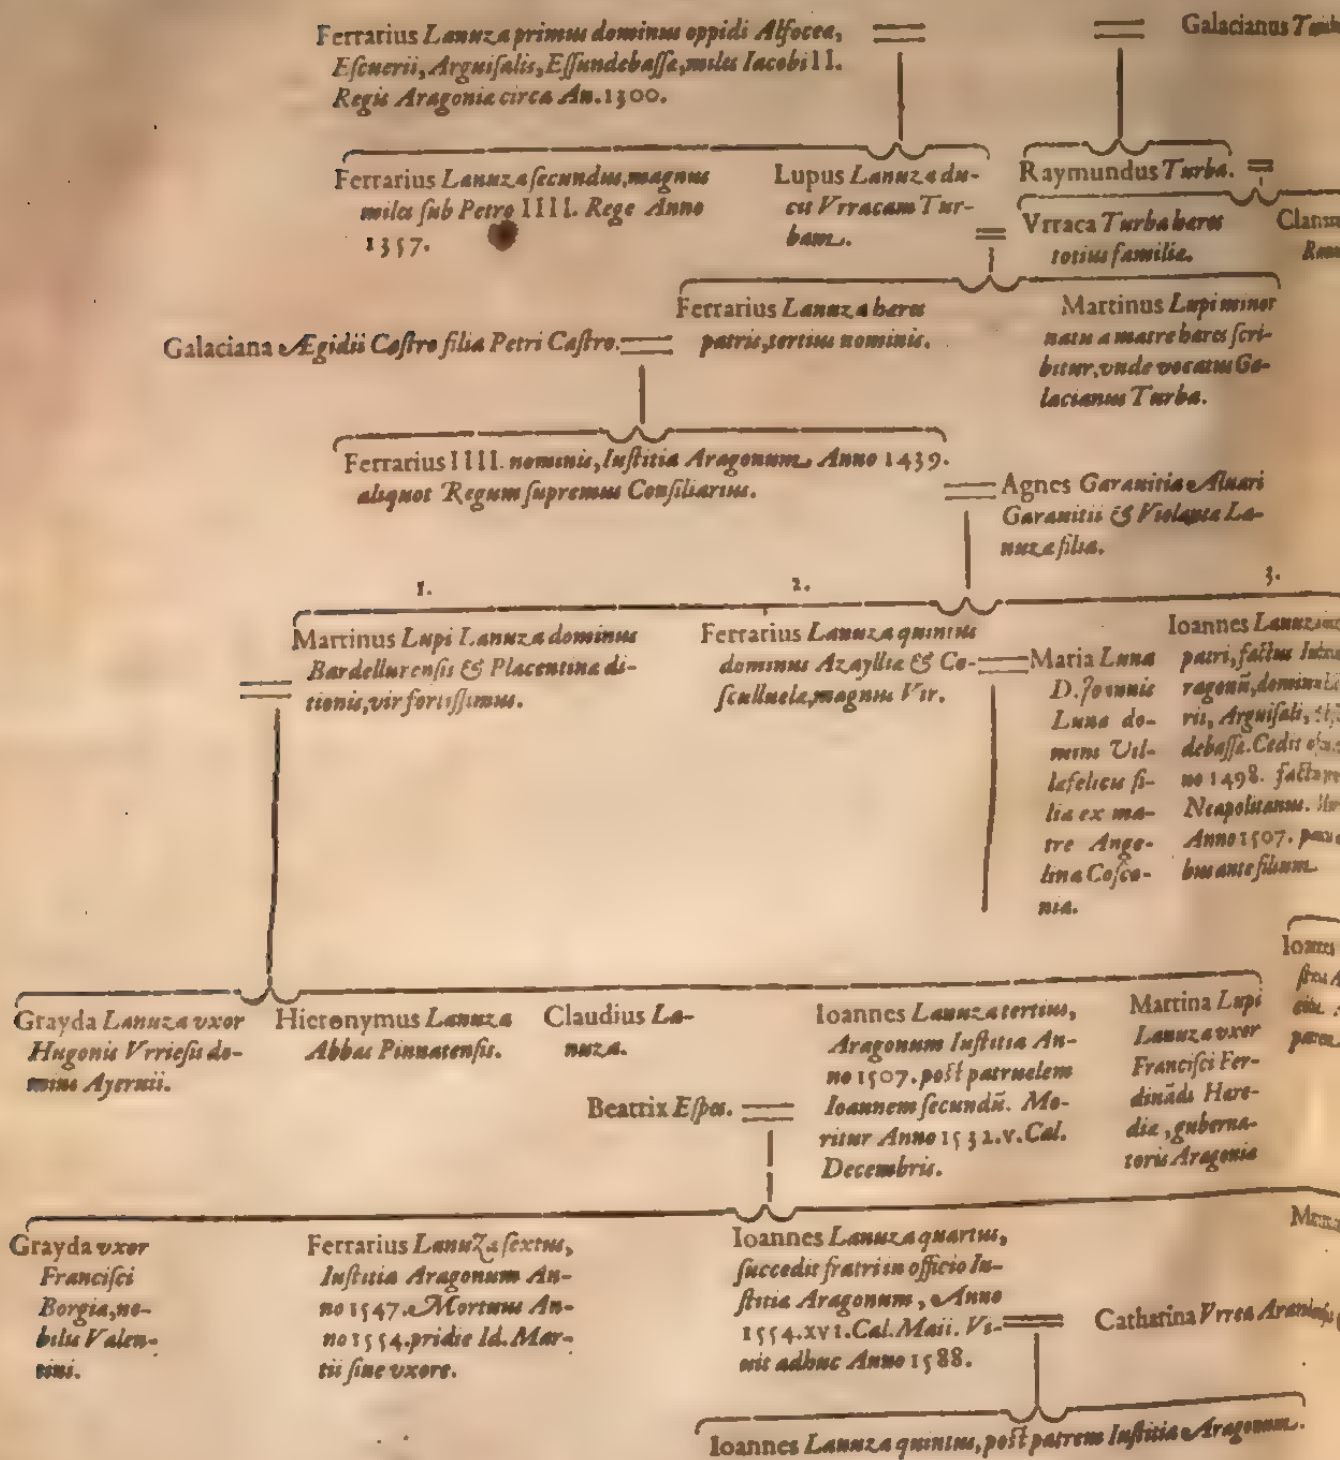 Ferrarius Lanuza primus dominus oppidi Alfocea,
Escuerii, Arguisalis, Essundebassa, miles Iacobi II.
Regis Aragoniæ circa An. 1300.
Galacianus
Ferrarius Lanuza secundus, magnus
miles sub Petro IIII. Rege Anno
1357.
Lupus Lanuza du-
cit Vrracam Tur-
bam.
Raymundus Turba.
Vrraca Turba hæres
totius familiæ.
Galaciana Ægidii Castro filia Petri Castro.
Ferrarius Lanuza hæres
patris, tertius nominis.
Martinus Lupi minor
natu a matre hæres scri-
bitur, vnde vocatus Ga-
lacianus Turba.
Ferrarius IIII. nominis, Iustitia Aragonum Anno 1439.
aliquot Regum supremus Consiliarius.
Agnes Garanitia Aluari
Garanitii & Violanta La-
nuza filia.
1.
2.
3.
Martinus Lupi Lanuza dominus
Bardellurensis & Placentina di-
tionis, vir fortissimus.
Ferrarius Lanuza quintus
dominus Azaylliæ & Co-
sculluela, magnus Vir.
Maria Luna
D. Joannis
Luna do-
mini Vil-
lafelicis fi-
lia ex ma-
tre Ange-
lina Cosco-
nia.
Ioannes Lanuza
patri, factus
ragonũ,
rii, Arguisali,
debassa. Cedit
no 1498.
Neapolitanus.
Anno 1507.
bus ante filium.
Grayda Lanuza vxor
Hugonis Vrriesis do-
mini Ayernii.
Hieronymus Lanuza
Abbas Pinnatensis.
Claudius La-
nuza.
Beatrix Espes.
Ioannes Lanuza tertius,
Aragonum Iustitia An-
no 1507. post patruelem
Ioannem secundũ. Mo-
ritur Anno 1532. v. Cal.
Decembris.
Martina Lupi
Lanuza vxor
Francisci Fer-
dinãdi Hare-
dia, guberna-
toris Aragonia
Grayda vxor
Francisci
Borgia, no-
bilis Valen-
tini.
Ferrarius Lanuza sextus,
Iustitia Aragonum An-
no 1547. Mortuus An-
no 1554. pridie Id. Mar-
tii sine vxore.
Ioannes Lanuza quartus,
succedit fratri in officio Iu-
stitia Aragonum, Anno
1554. xvi. Cal. Maii. Vi-
uit adhuc Anno 1588.
Catharina Vrrea
Ioannes Lanuza quintus, post patrem Iustitia Aragonum.